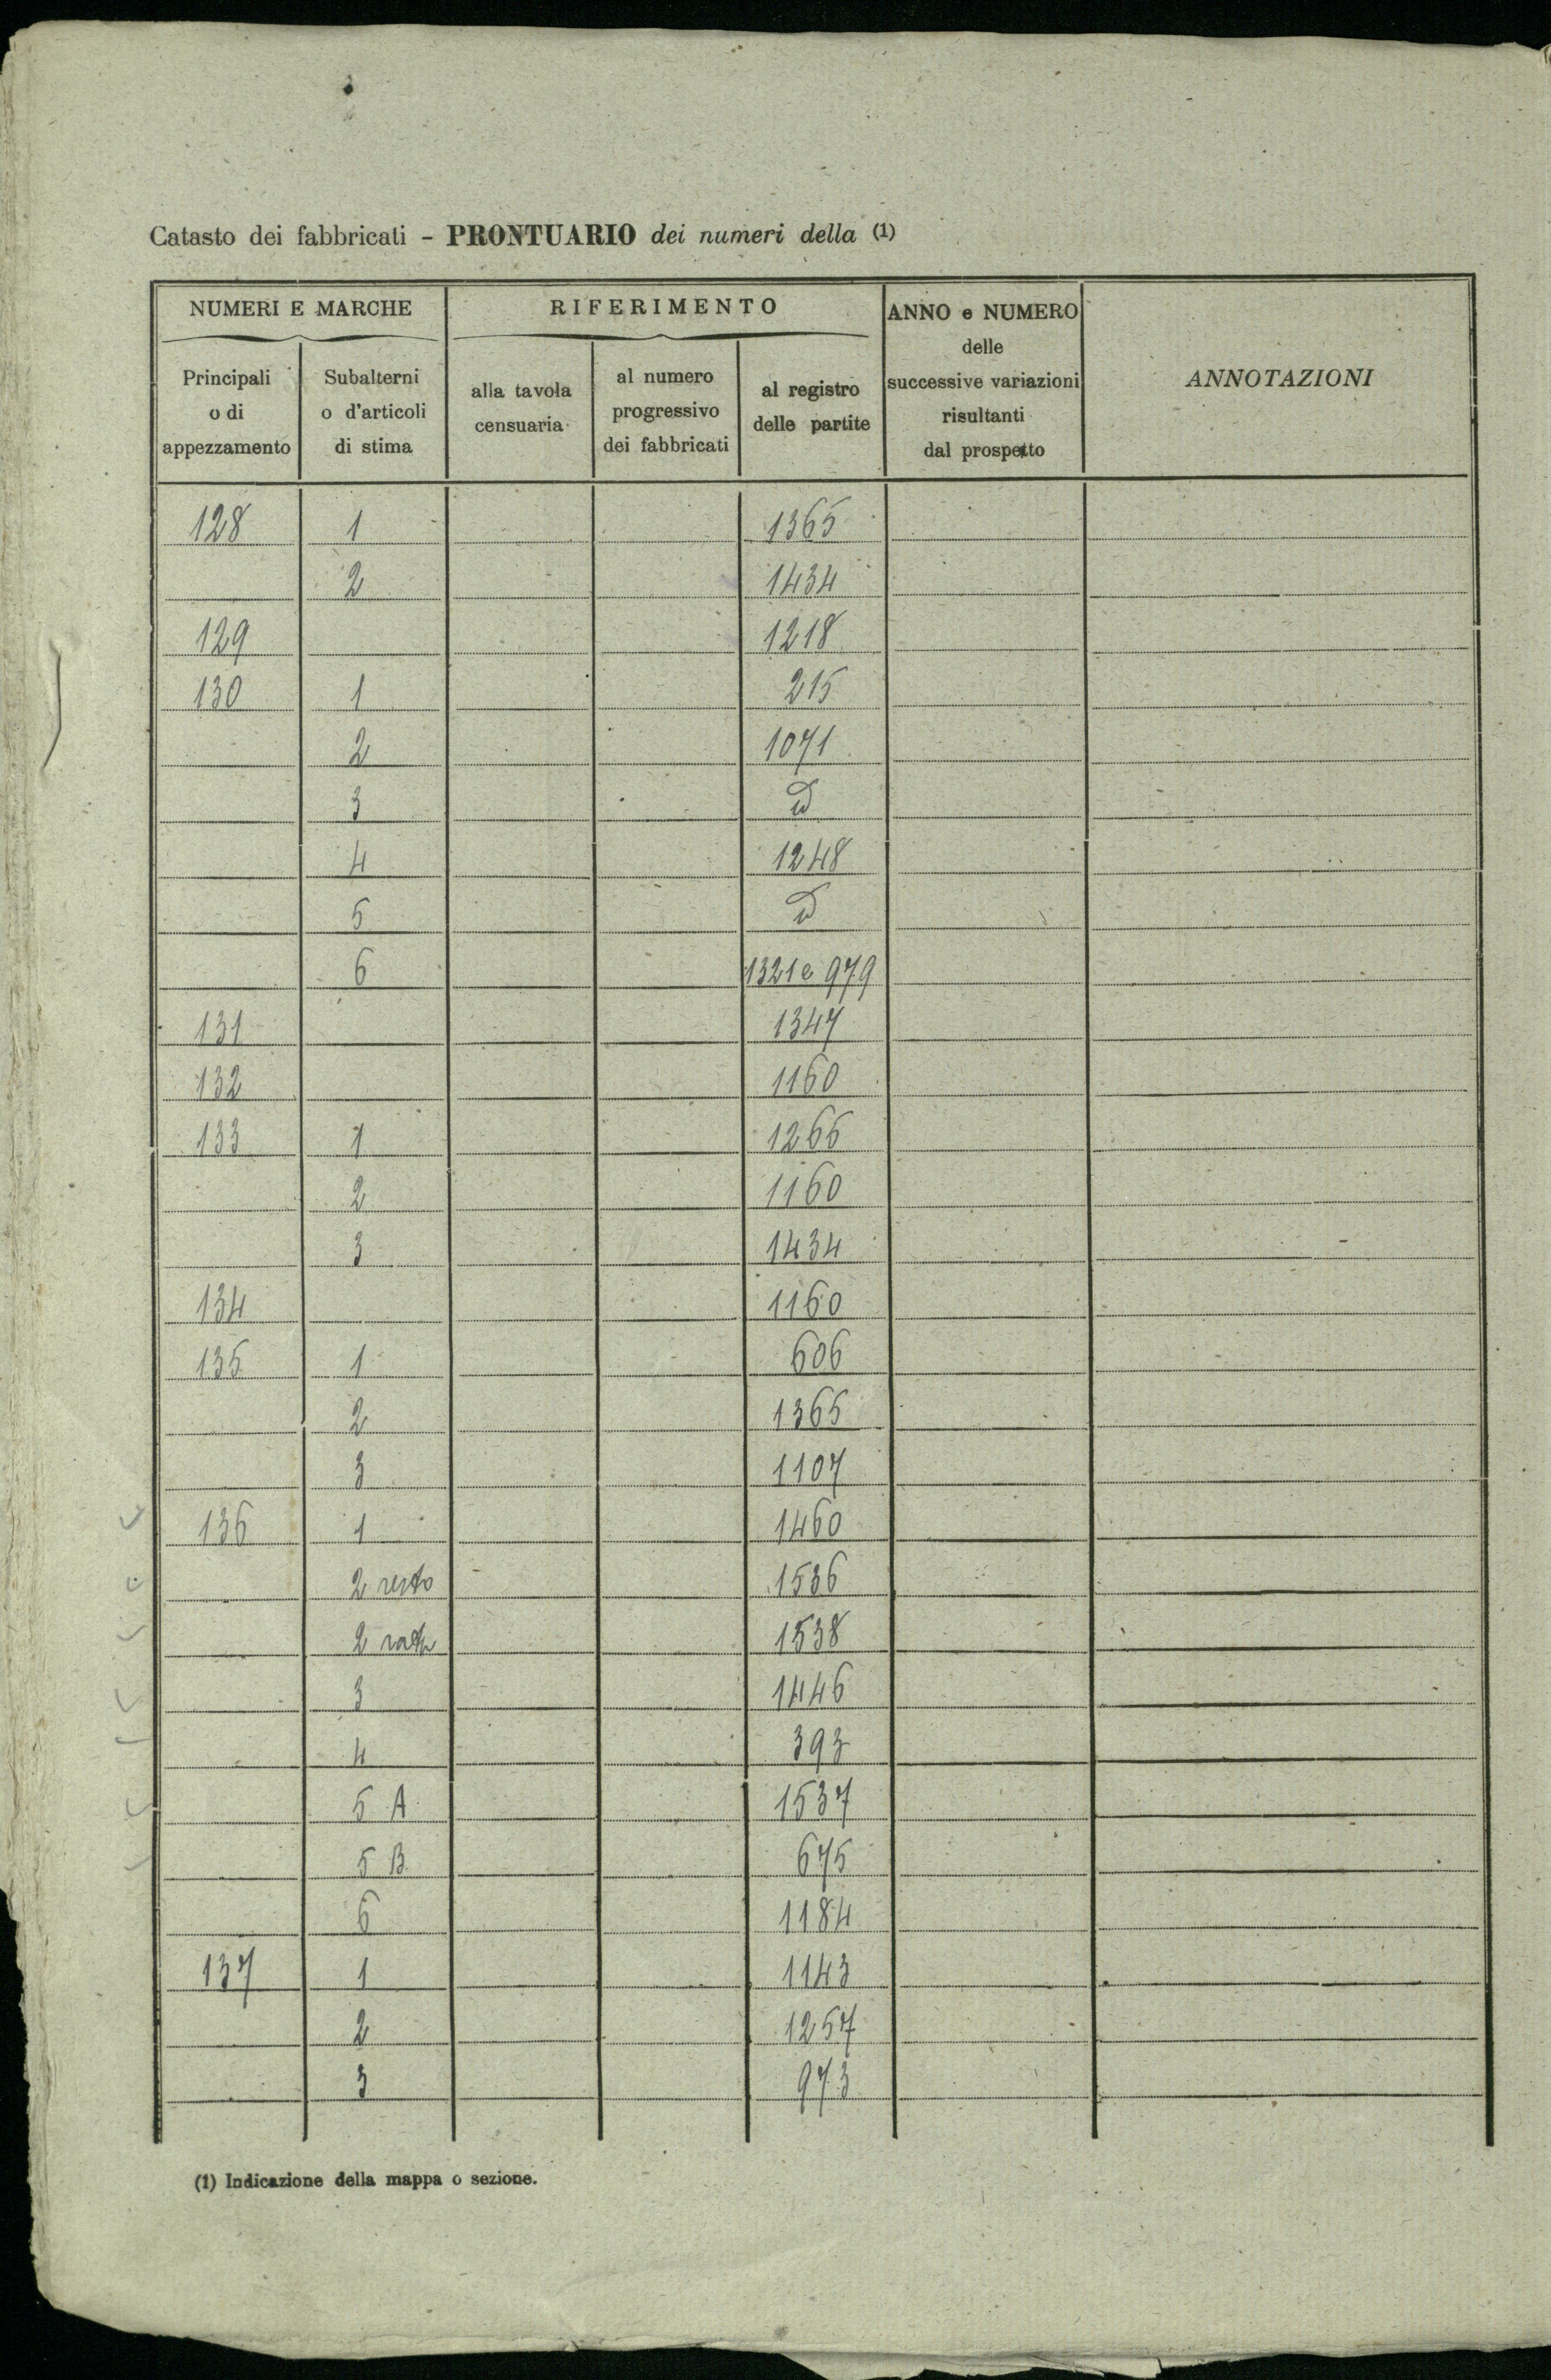 Catasto dei fabbricati - PRONTUARIO dei numeri della (1)
NUMERI E MARCHE
Principali o di appezzamento
Subalterni o d'articoli di stima
RIFERIMENTO
alla tavola censuaria
al numero progressivo dei fabbricati
al registro delle partite
ANNO e NUMERO delle successive variazioni risultanti dal prospetto
ANNOTAZIONI
128 1 1365
2 1434
129 1218
130 1 215
2 1071
3 id
4 1248
5 id
6 1321 e 979
131 1347
132 1160
133 1 1266
2 1160
3 1434
134 1160
135 1 606
2 1365
3 1107
136 1 1460
2 resto 1536
2 1538
3 1446
4 393
5 A 1537
5 B 675
6 1184
137 1 1143
2 1257
3 973
(1) Indicazione della mappa o sezione.